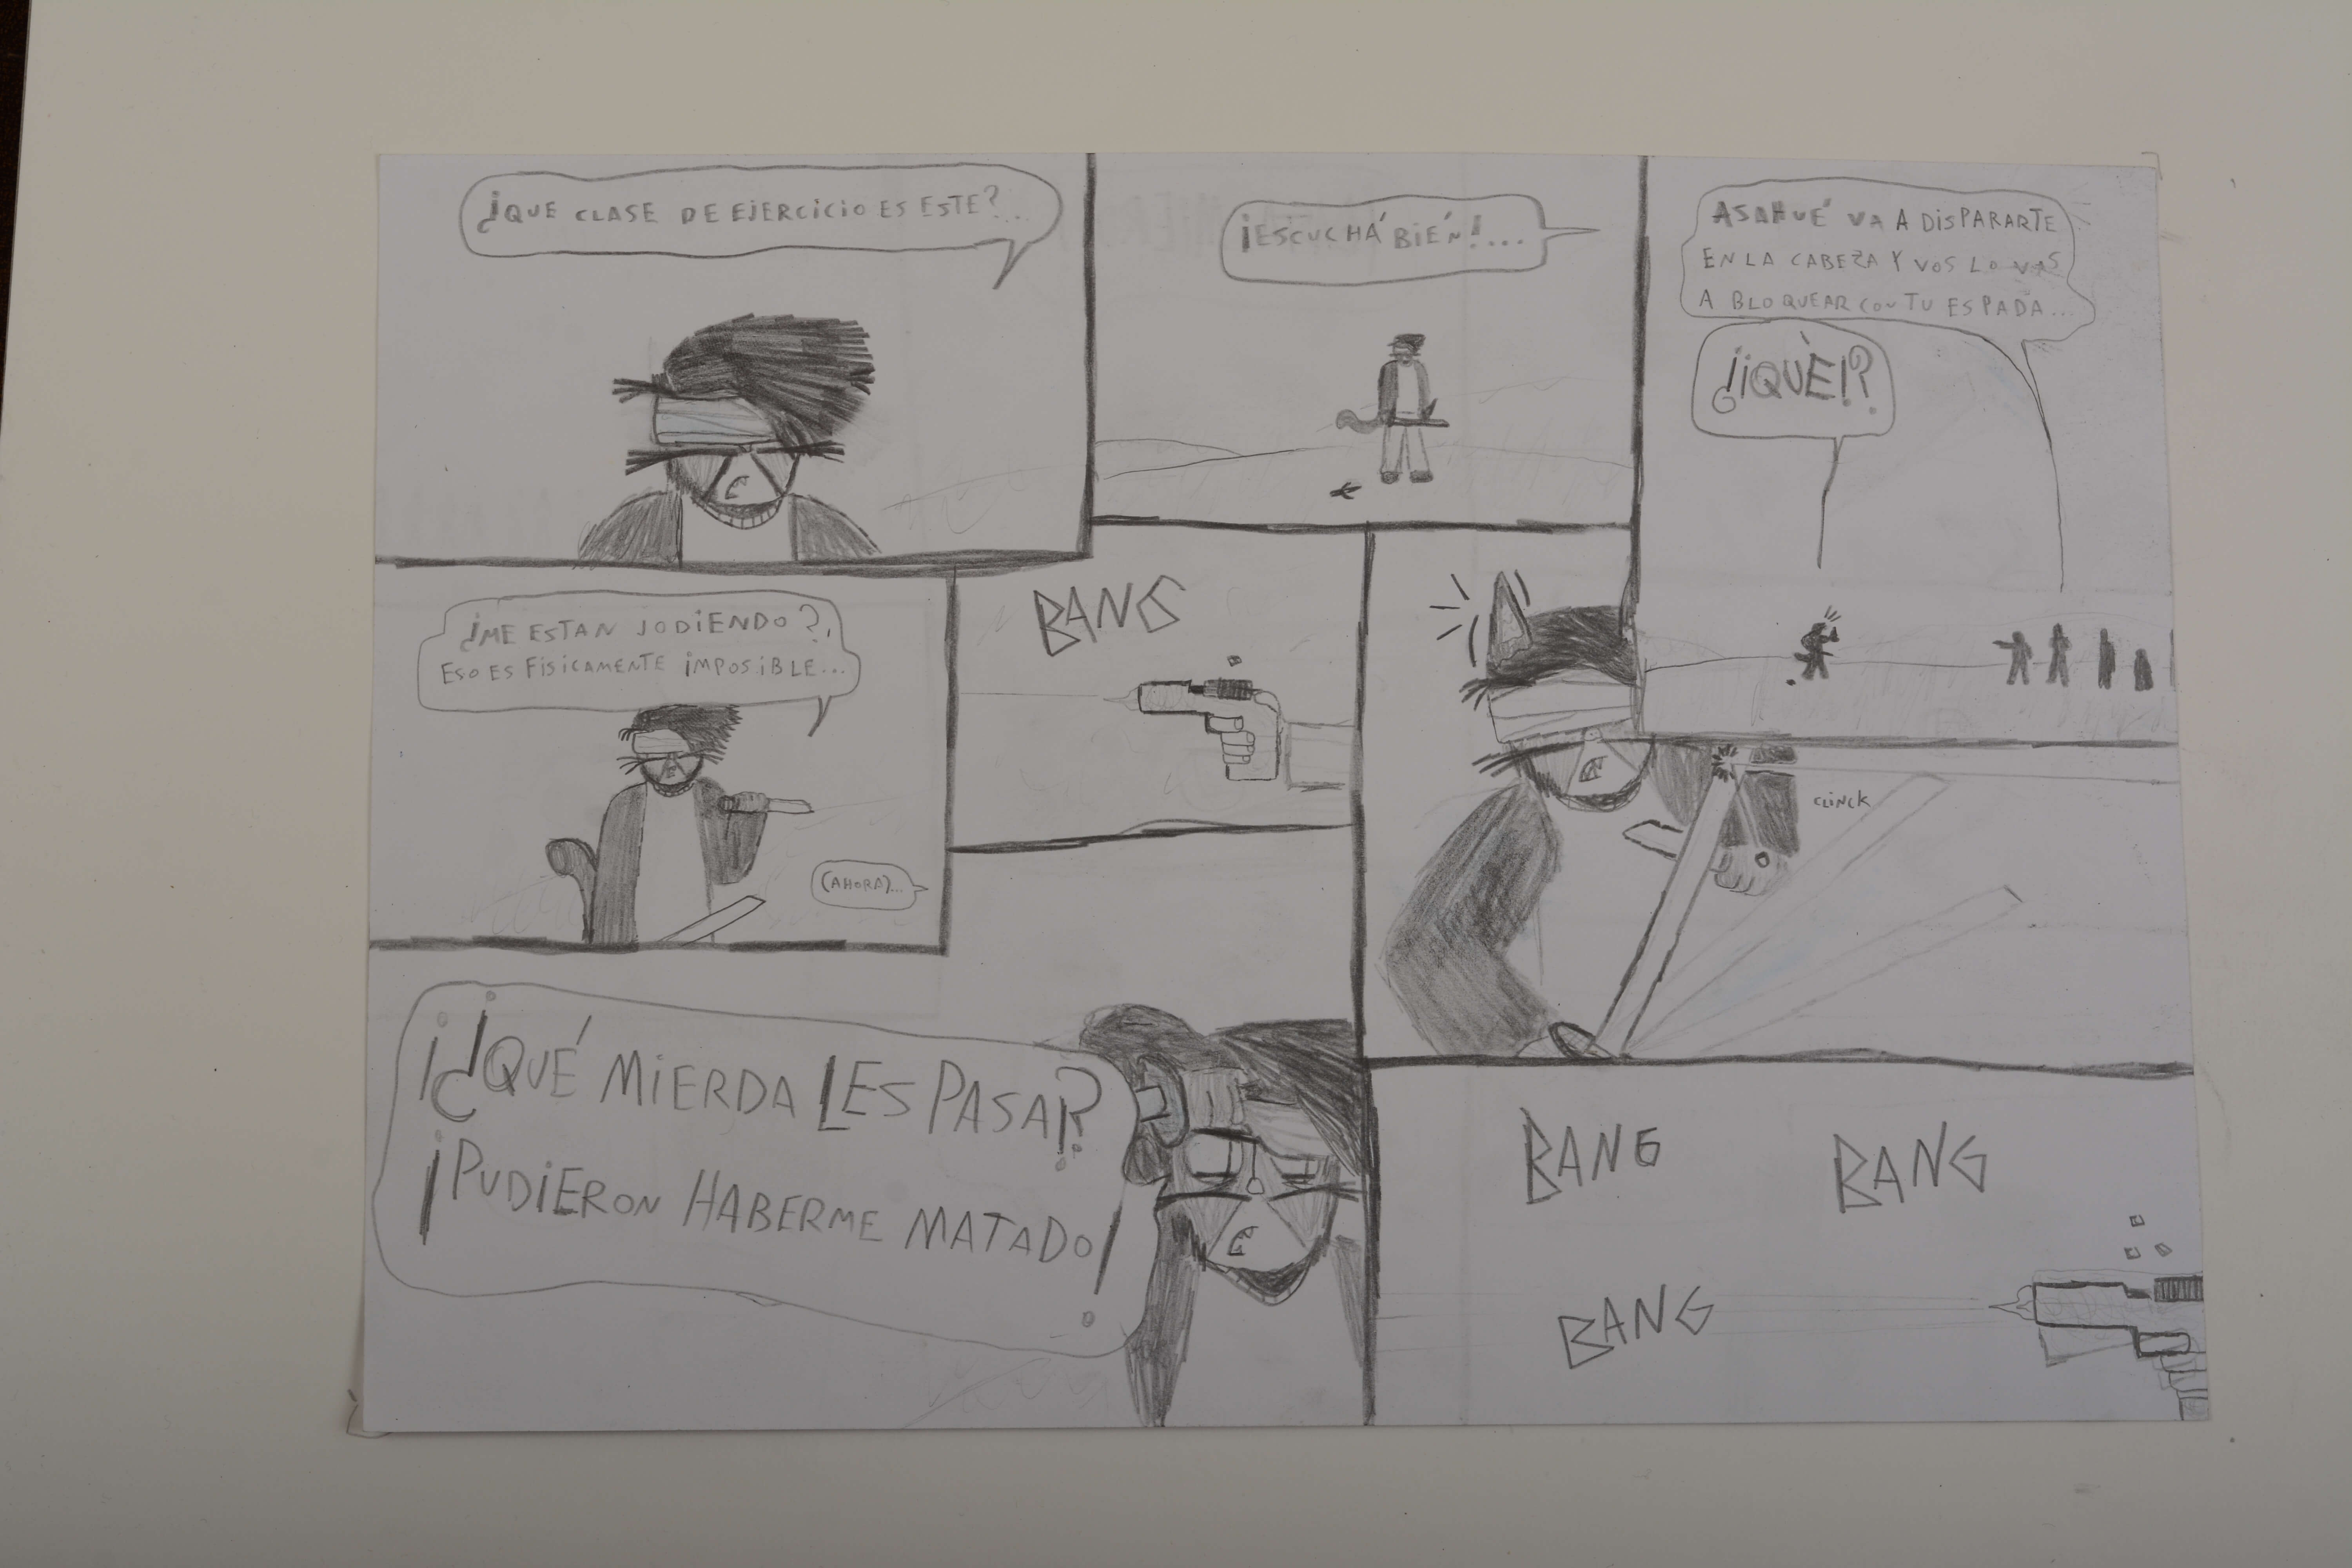 ¿QUE CLASE DE EJERCICIO ES ESTE?...
¡ESCUCHÁ BIÉN!...
ASAHUÉ VA A DISPARARTE
EN LA CABEZA Y VOS LO VAS
A BLOQUEAR CON TU ESPADA...
¿¡¡QUÈ!?
¿ME ESTAN JODIENDO?,
ESO ES FISICAMENTE IMPOSIBLE...
(AHORA)...
BANG
CLINCK
¡¿QUÉ MIERDA LES PASA?
¡PUDIERON HABERME MATADO!
BANG
BANG
BANG